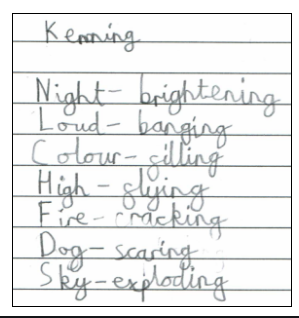 Kenning
Night- brightening
Loud- banging
Colour- filling
High- flying
Fire- cracking
Dog- scaring
Sky-exploding